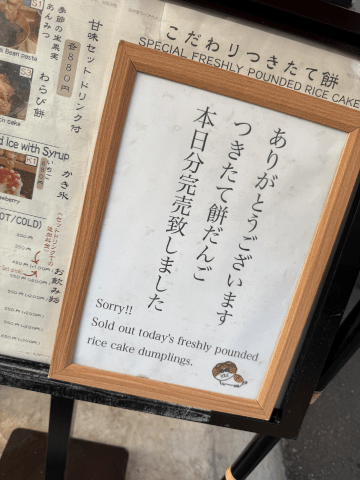 こだわりつきたて餅
SPECIAL FRESHLY POUNDED RICE CAKE
ありがとうございます
つきたて餅だんご
本日分完売致しました
Sorry!!
Sold out today's freshly pounded
rice cake dumplings.
甘味セット・ドリンク付
各880円
季節の実果実
あんみつ
S1
Bean pasta
わらび餅
S3
Ice with Syrup
かき氷
いちご
K1
OT/COLD)
お飲み物